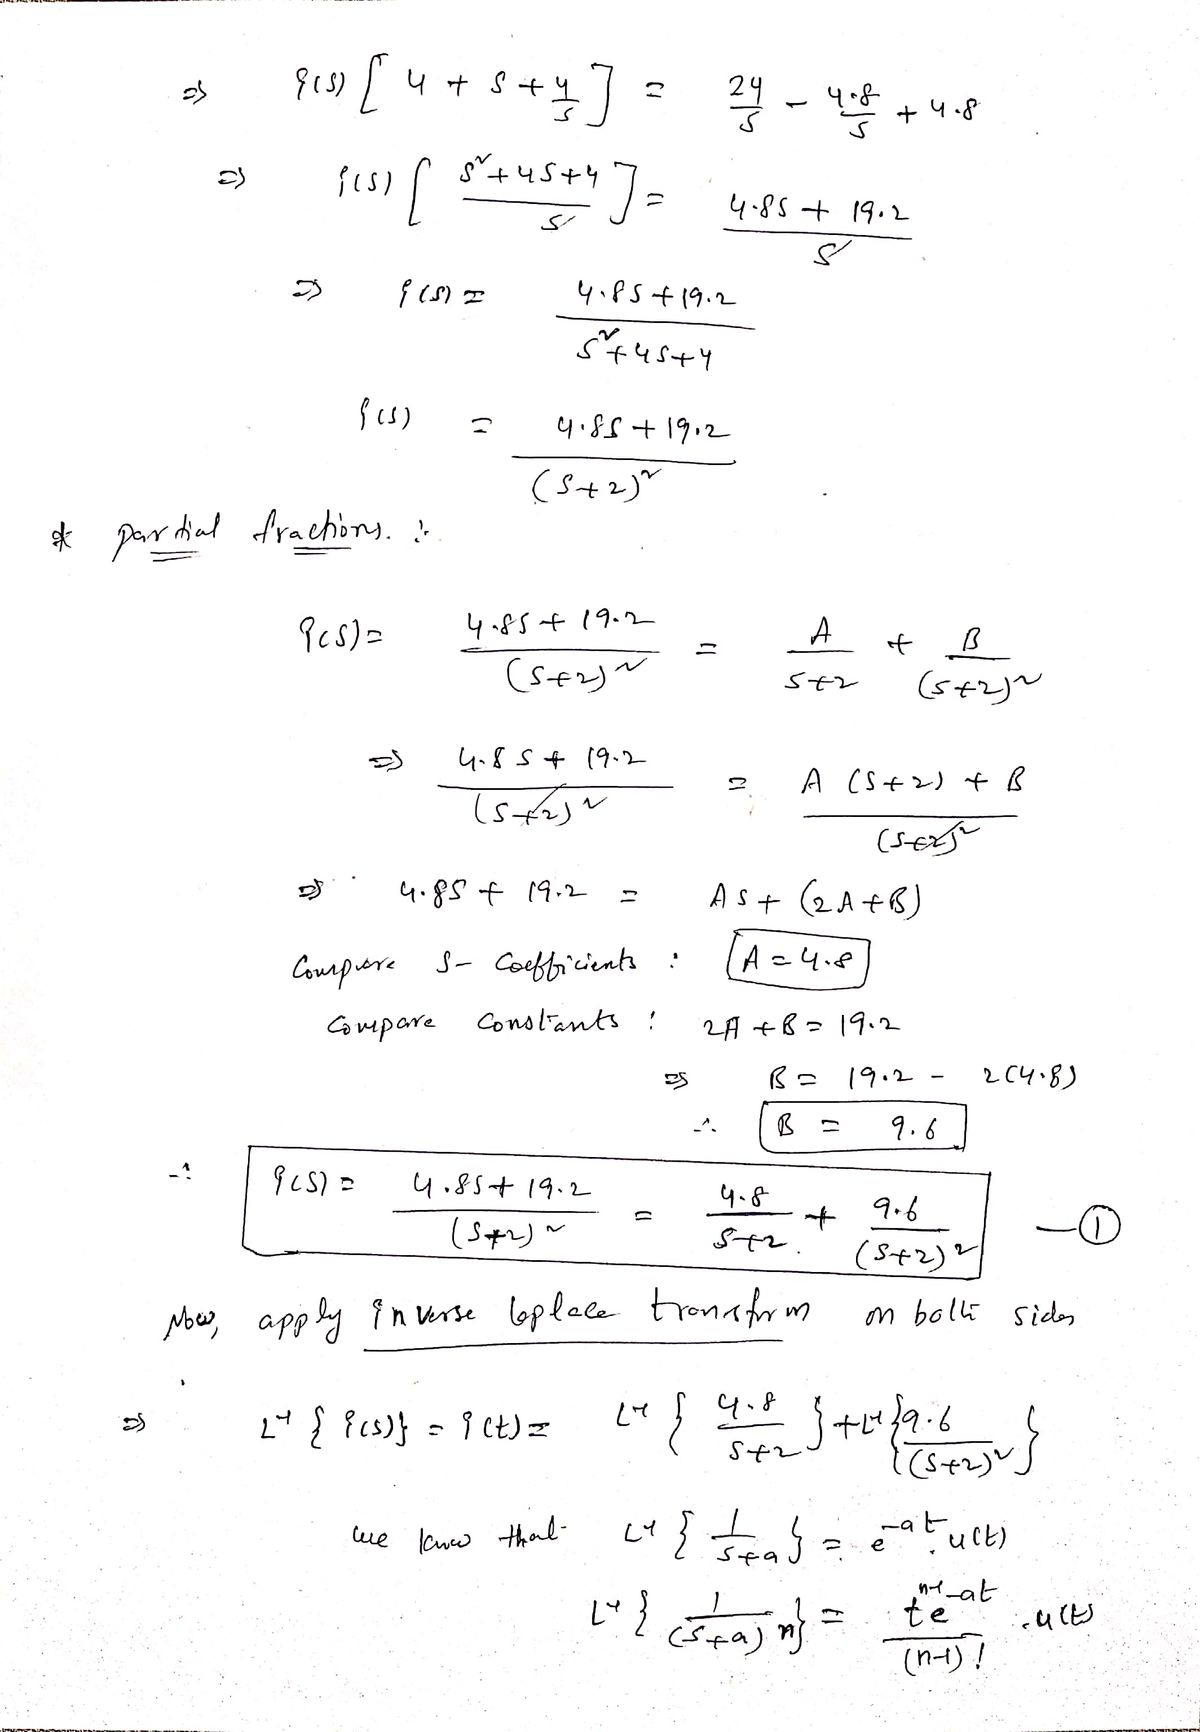 ⇒ i(s) [ 4 + s + 4/s ] = 24/s - 4.8/s + 4.8
⇒ i(s) [ (s² + 4s + 4)/s ] = (4.8s + 19.2)/s
⇒ i(s) = (4.8s + 19.2)/(s² + 4s + 4)
i(s) = (4.8s + 19.2)/(s+2)²
* partial fractions :
i(s) = (4.8s + 19.2)/(s+2)² = A/(s+2) + B/(s+2)²
⇒ (4.8s + 19.2)/(s+2)² = (A(s+2) + B)/(s+2)²
⇒ 4.8s + 19.2 = As + (2A+B)
Compare s- coefficients : A = 4.8
Compare constants : 2A + B = 19.2
⇒ B = 19.2 - 2(4.8)
∴ B = 9.6
∴ i(s) = (4.8s + 19.2)/(s+2)² = 4.8/(s+2) + 9.6/(s+2)² —①
Now, apply inverse laplace transform on both sides
⇒ L⁻¹{i(s)} = i(t) = L⁻¹{4.8/(s+2)} + L⁻¹{9.6/(s+2)²}
we know that L⁻¹{1/(s+a)} = e^(-at).u(t)
L⁻¹{1/(s+a)^n} = t^(n-1) e^(-at)/(n-1)! .u(t)